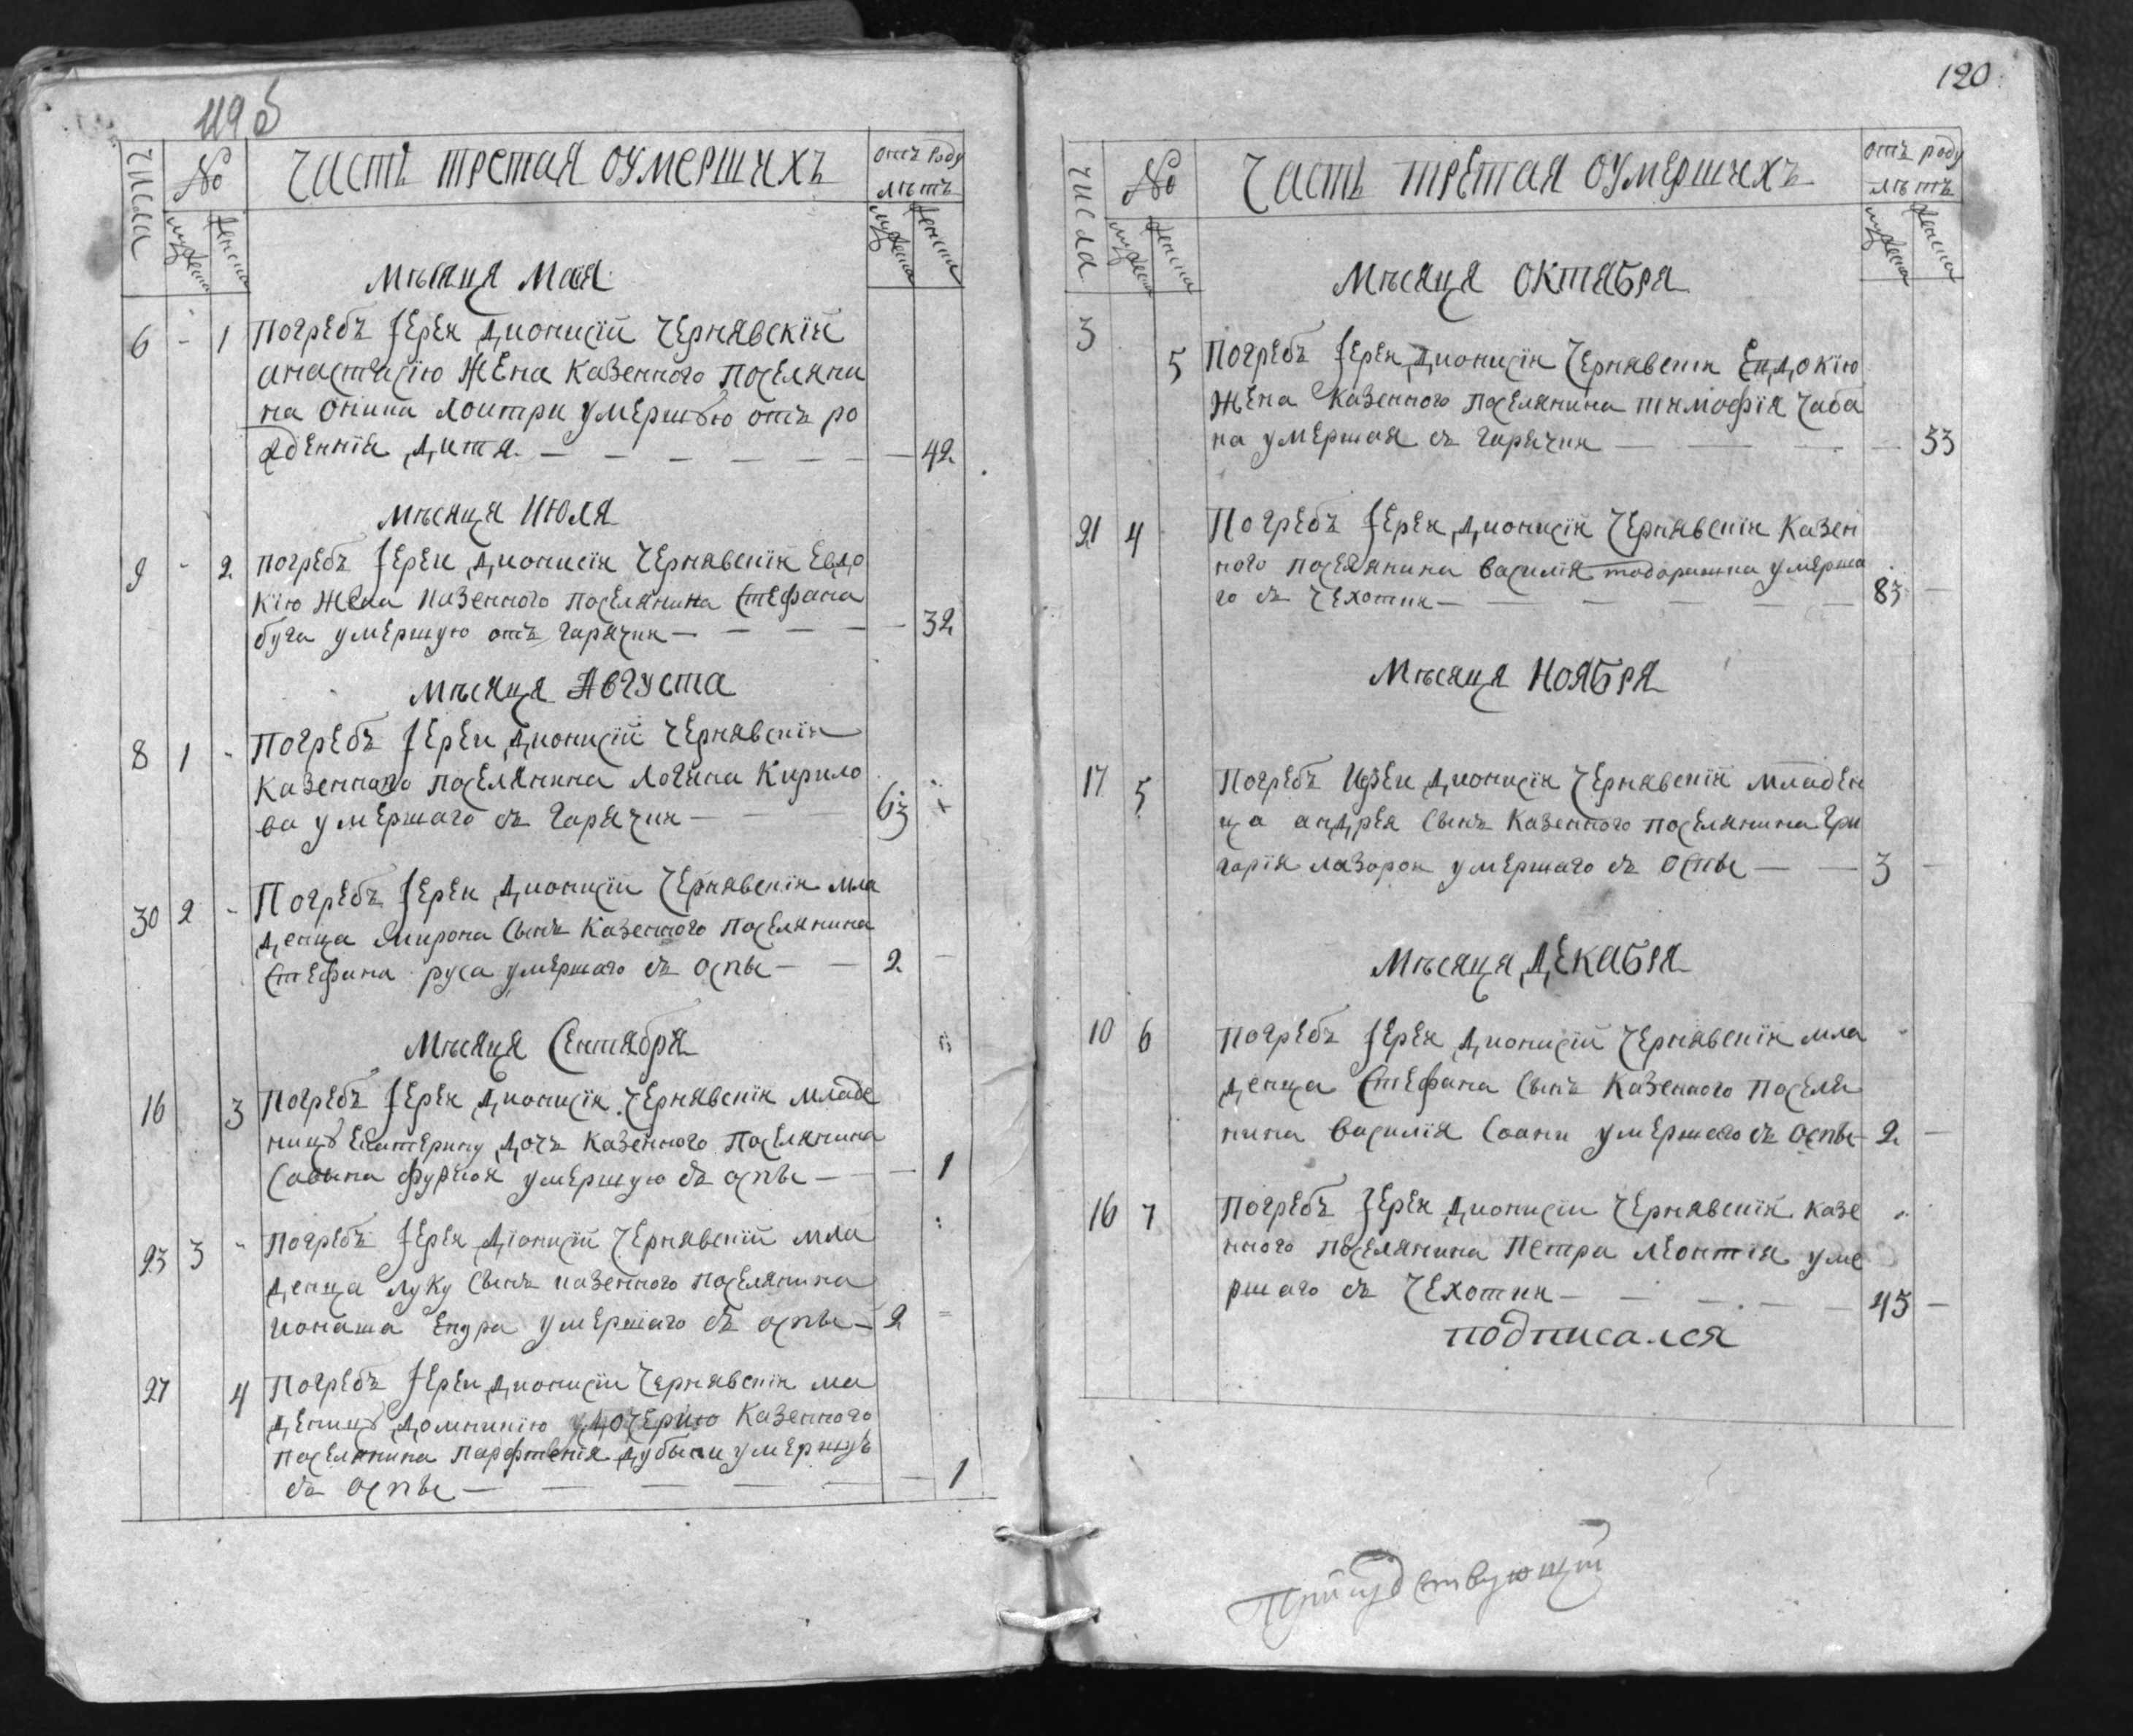 119 б
числа
№
Часть третая оумершихъ
отъ роду
лѣтъ
мужеска
женска
Мѣсяца Мая
6 - 1 Погребъ Іерей Дионисій Чернявскій
анастасію Жена казенного поселяни
на Онипа Лоитри умершую отъ ро
жденнія дитя — — — — — — 42
Мѣсяца Июля
9 - 2 погребъ Іерей Дионисій Чернявскій Евдо
кію Жена казенного поселянина Стефана
буга умершую отъ гарячки — — — — — 32
Мѣсяца Августа
8 1 - Погребъ Іерей Дионисій Чернявскій
казенного поселянина Логина Кирило
ва умершаго съ гарячки — — 63
30 2 - Погребъ Іерей Дионисій Чернявскій мла
денца Мирона сынъ казенного поселянина
Стефана руса умершаго съ оспы — — 2 —
Мѣсяца Сентября
16 3 Погребъ Іерей Дионисій Чернявскій младе
ницѣ Екатерину дочь казенного поселянина
Савина умершую съ оспы — — 1
23 3 - Погребъ Іерей Діонисій Чернявскій мла
денца луку сынъ казенного поселянина
ионаша умершаго съ оспы — 2 =
27 4 Погребъ Іерей Дионисій Чернявскій мла
деницѣ Домникію дочерию казенного
поселянина Парфтенія умершую
съ оспы — — — — — — 1
120
числа
№
Часть третая оумершихъ
отъ роду
лѣтъ
мужеска
женска
Мѣсяца октября
3 5 Погребъ Іерей Дионисій Чернявскій Евдокію
Жена казенного поселянина тимофія Чаба
на умершая съ гарячки — — — — 33
21 4 Погребъ Іерей Дионисій Чернявскій казен
ного поселянина василія тодорашка умерша
го съ чехотки — — — — — — 83 —
Мѣсяца Ноября
17 5 Погребъ Иерей Дионисій Чернявскій младен
ца андрея сынъ казенного поселянина Гри
горія лазорок умершаго съ оспы — — 3 —
Мѣсяца Декабря
10 6 Погребъ Іерей Дионисій Чернявскій мла
денца Стефана сынъ казенного поселя
нина василія умершаго съ оспы — 2 —
16 7 Погребъ Іерей Дионисій Чернявскій казе
нного поселянина Петра Леонтія уме
ршаго съ чехотки — — — — — 45 —
подписался